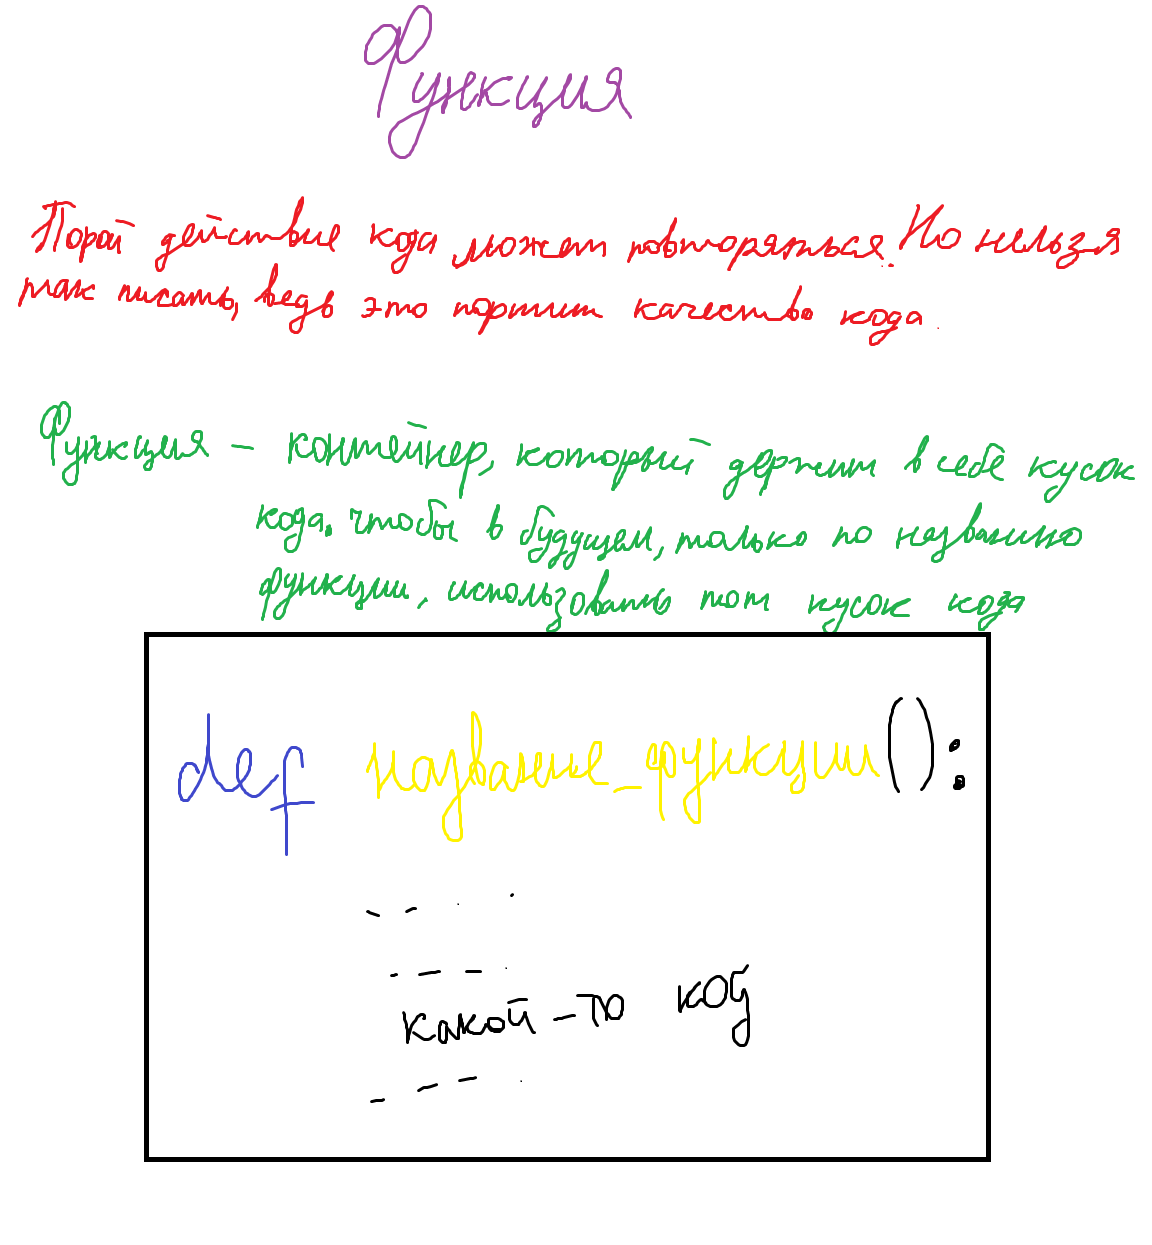 Функция
Порой действие кода может повторяться. Но нельзя
так писать, ведь это портит качество кода.
Функция - контейнер, который держит в себе кусок
кода, чтобы в будущем, только по названию
функции, использовать тот кусок кода
def название_функции():
какой-то код